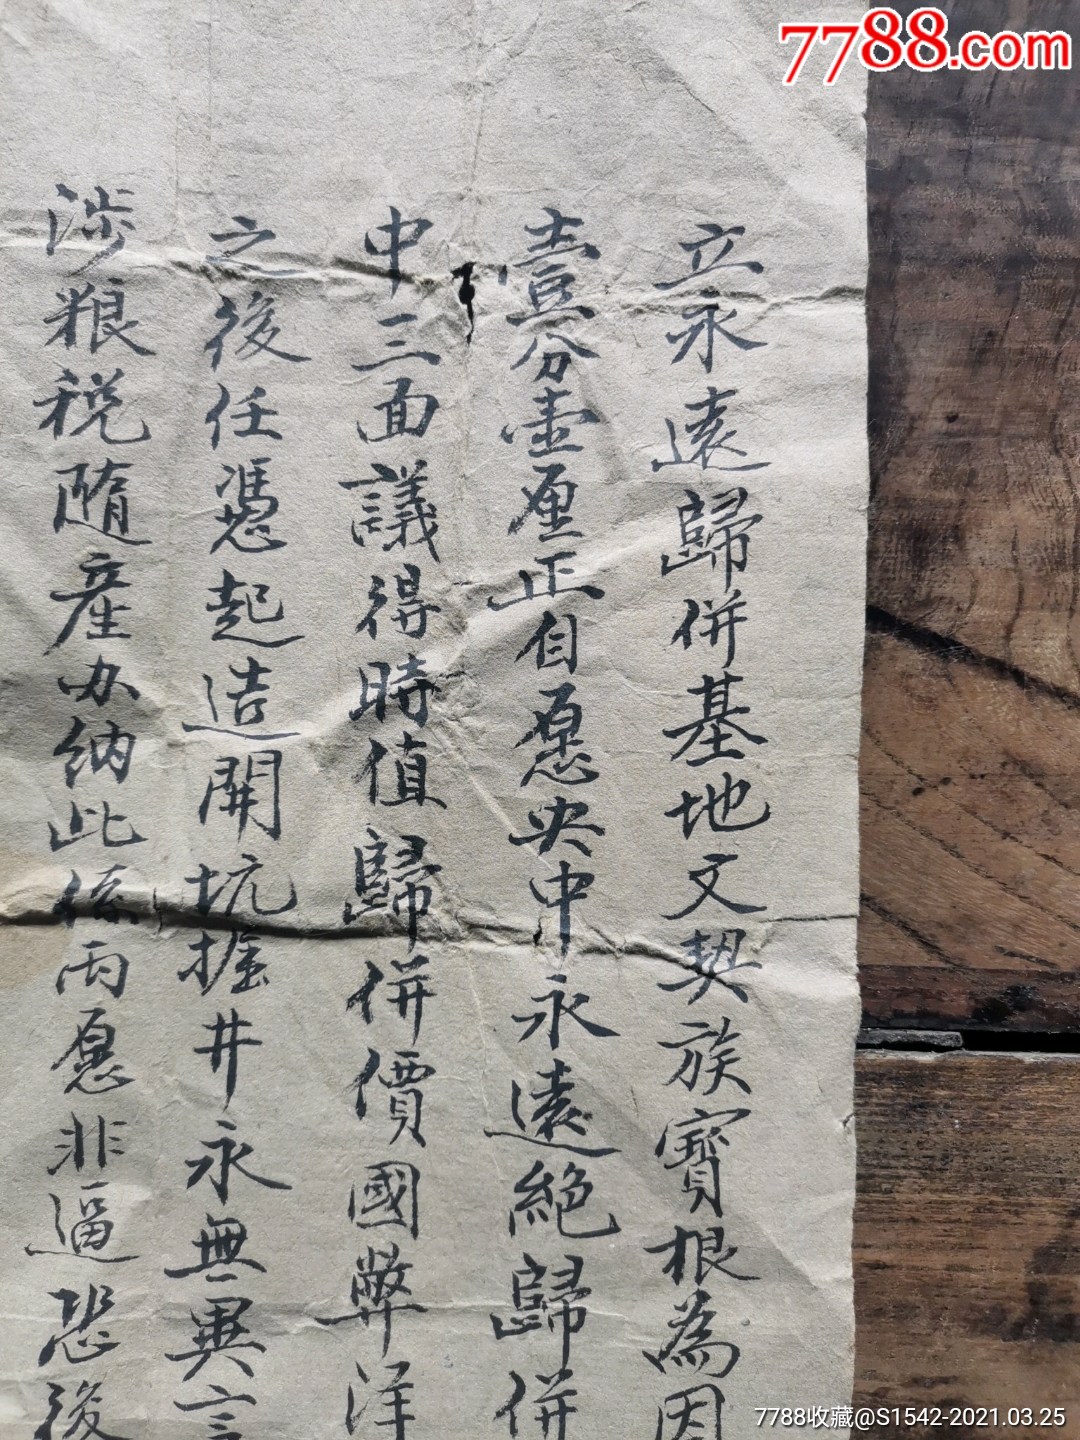 7788.com
立永遠歸併基地文契族寳根為因
壹分壷厘正自愿央中永遠絕歸併
中三面議得時值歸併價國弊洋
之後任憑起造開坑掘井永無異言
涉粮税隨產办納此係両愿非逼恐後
7788收藏@S1542-2021.03.25